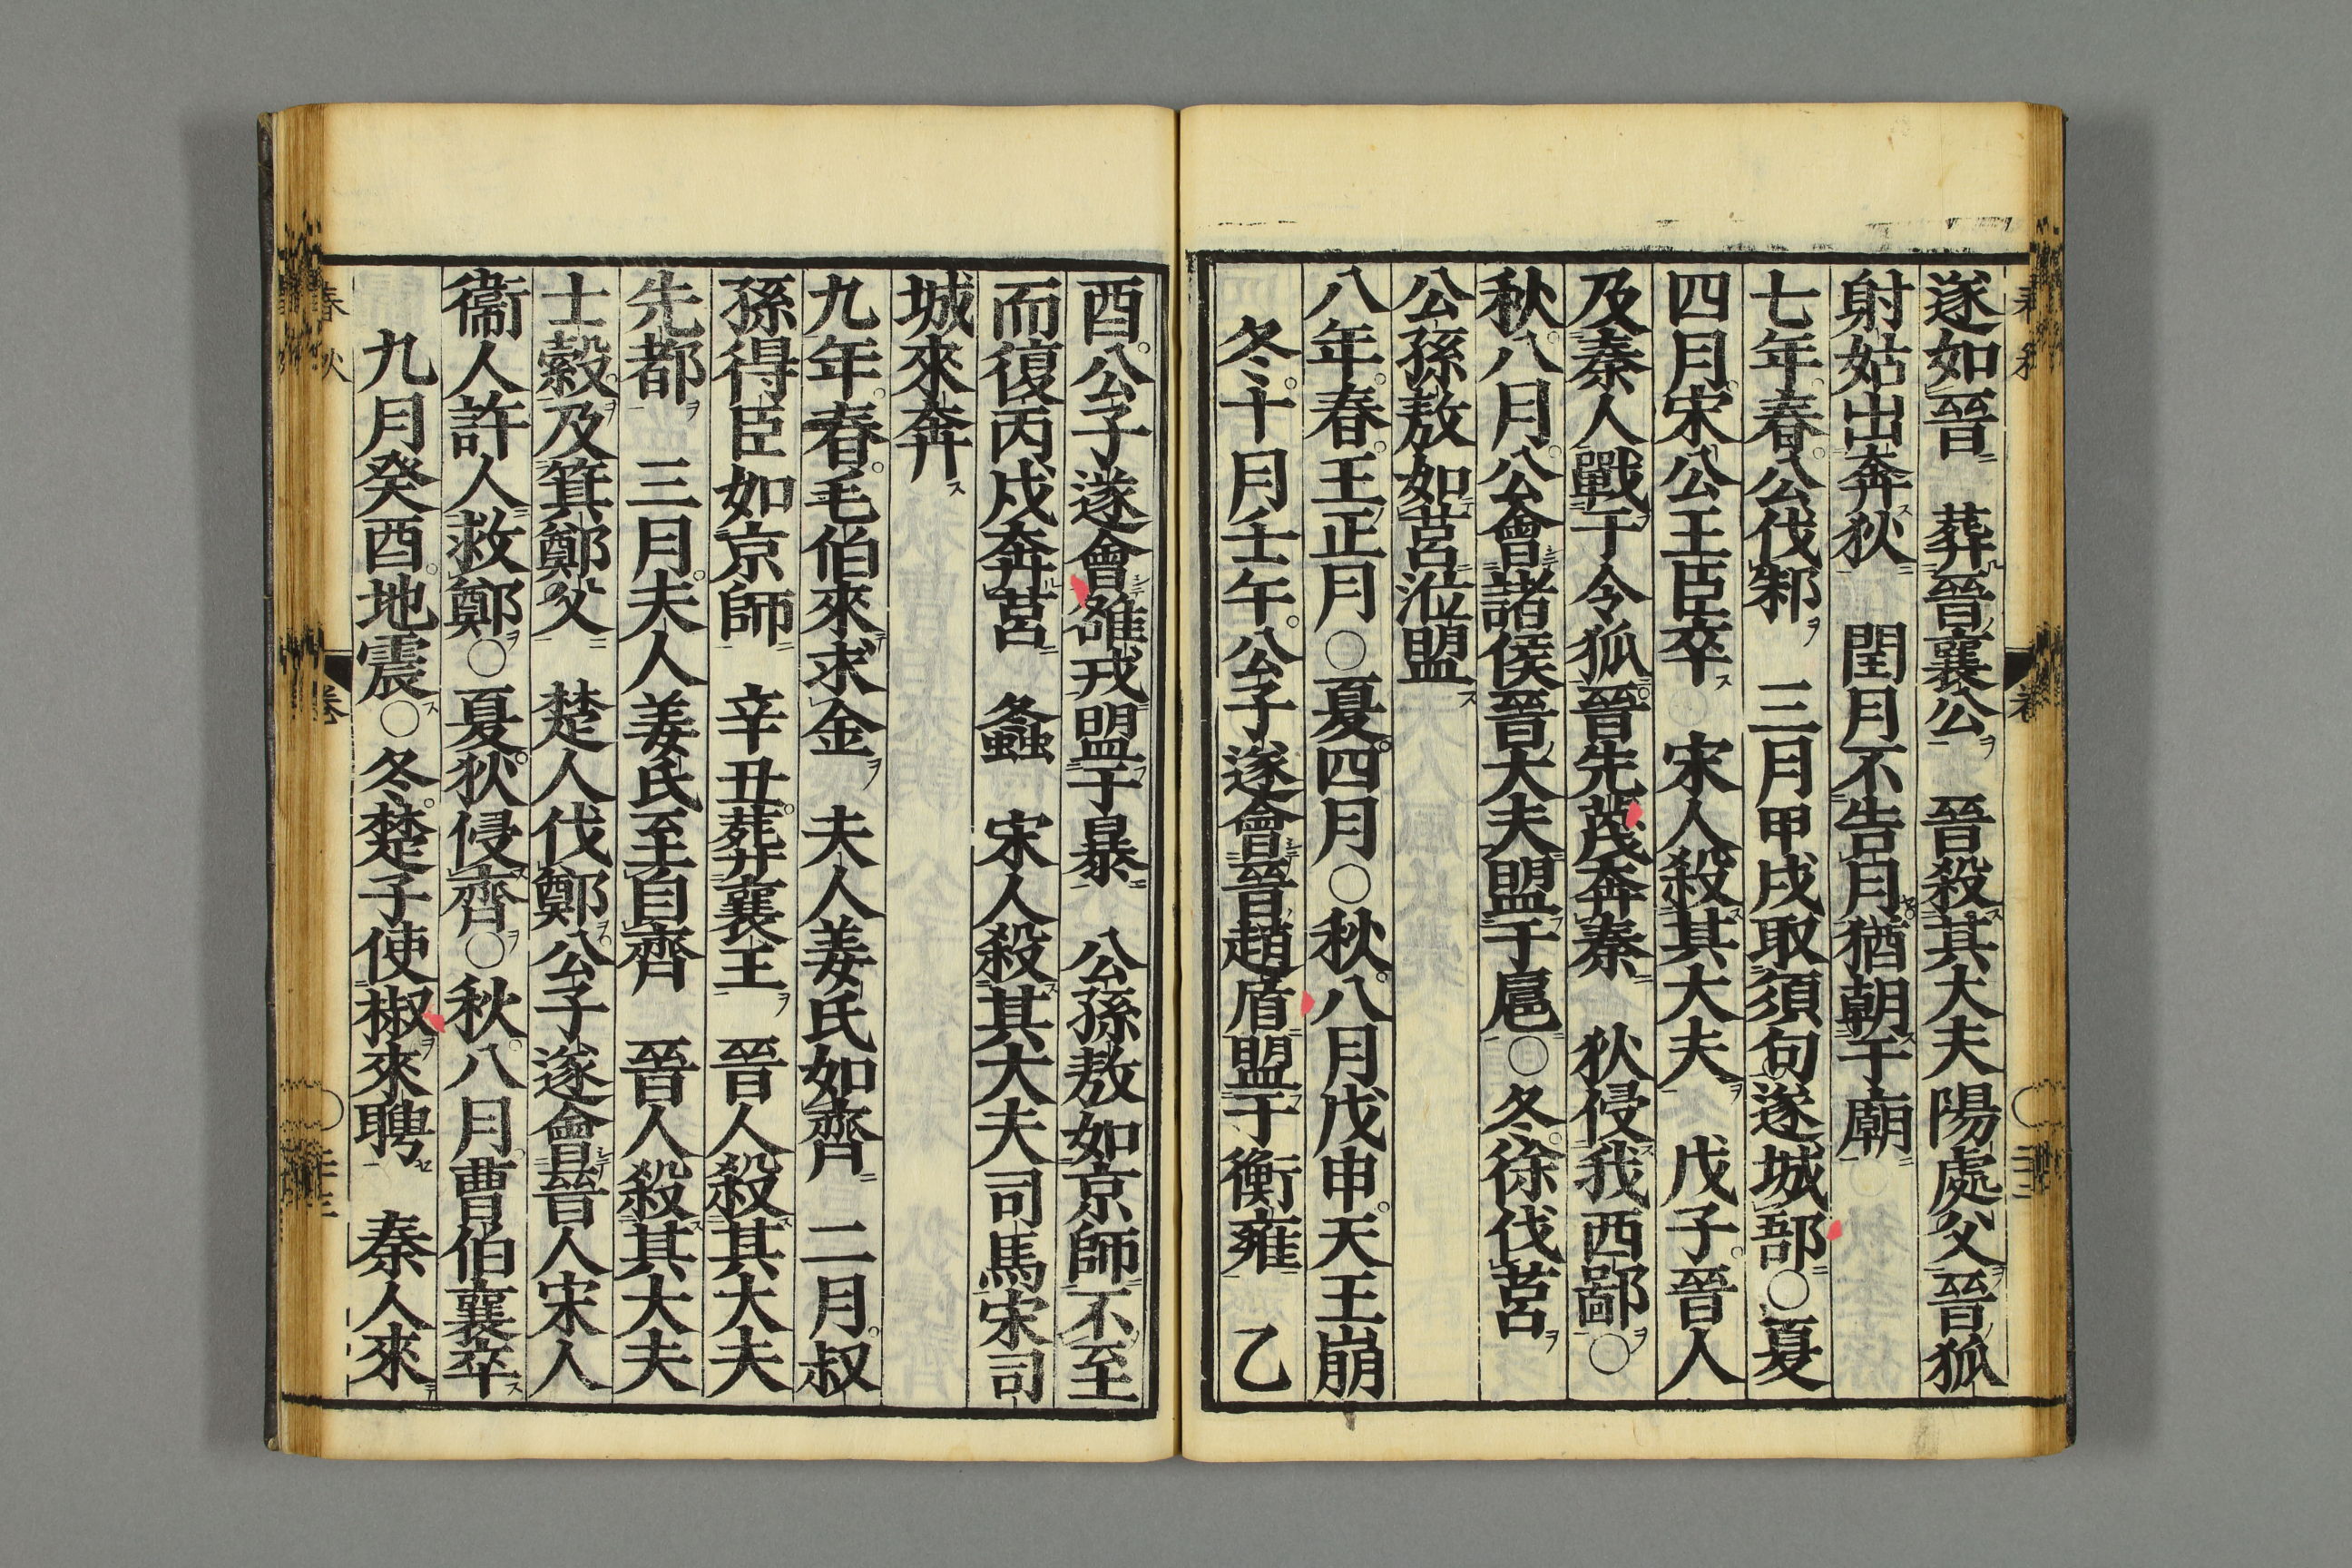 遂如晉　葬晉襄公　晉殺其大夫陽處父晉狐
射姑出奔狄　閏月不告月猶朝于廟
七年春公伐邾　三月甲戌取須句遂城郚○夏
四月宋公王臣卒　宋人殺其大夫　戊子晉人
及秦人戰于令狐晉先蔑奔秦　狄侵我西鄙○
秋八月公會諸侯晉大夫盟于扈○冬徐伐莒
公孫敖如莒涖盟
八年春王正月○夏四月○秋八月戊申天王崩
冬十月壬午公子遂會晉趙盾盟于衡雍　乙
酉公子遂會雒戎盟于暴　公孫敖如京師不至
而復丙戌奔莒　螽　宋人殺其大夫司馬宋司
城來奔
九年春毛伯來求金　夫人姜氏如齊　二月叔
孫得臣如京師　辛丑葬襄王　晉人殺其大夫
先都　三月夫人姜氏至自齊　晉人殺其大夫
士縠及箕鄭父　楚人伐鄭公子遂會晉人宋人
衞人許人救鄭○夏狄侵齊○秋八月曹伯襄卒
九月癸酉地震○冬楚子使椒來聘　秦人來
春秋
卷